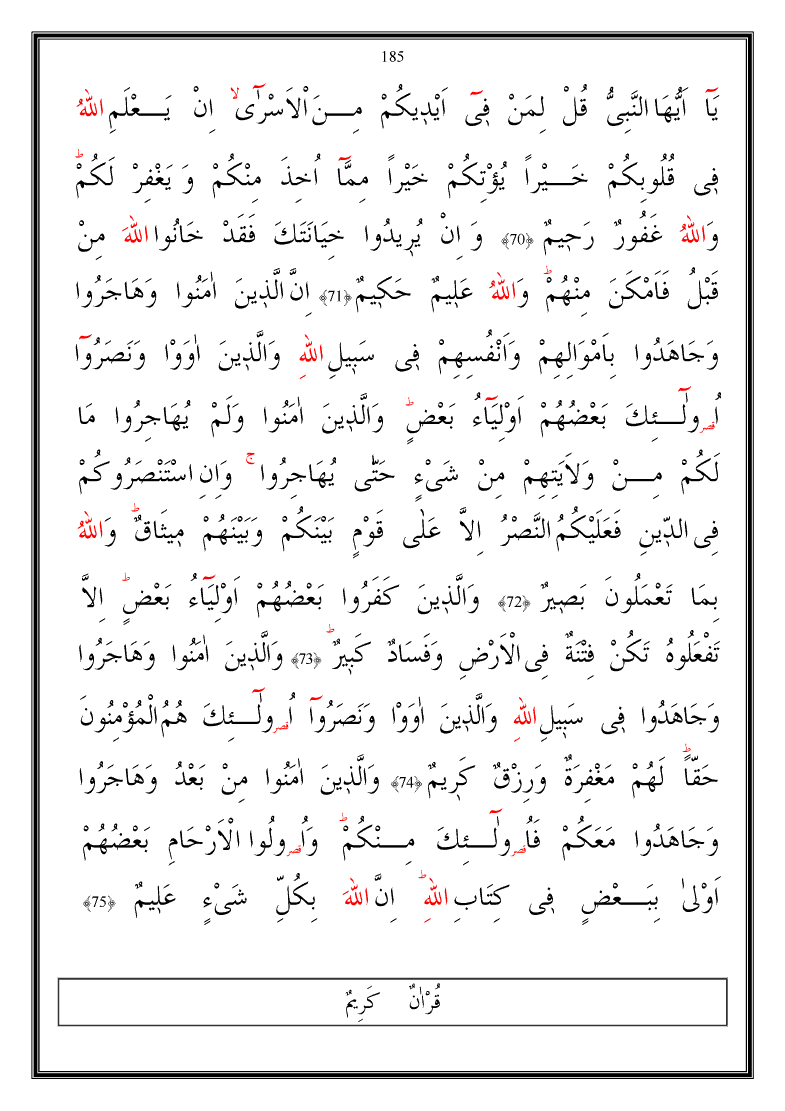 185
يَٓا اَيُّهَا النَّبِىُّ قُلْ لِمَنْ فٖٓى اَيْدٖيكُمْ مِـــنَ الْاَسْرٰٓىۙ اِنْ يَـــعْلَمِ اللّٰهُ
فٖى قُلُوبِكُمْ خَـــيْراً يُؤْتِكُمْ خَيْراً مِمَّٓا اُخِذَ مِنْكُمْ وَ يَغْفِرْ لَكُمْؕ
وَاللّٰهُ غَفُورٌ رَحٖيمٌ ﴿70﴾ وَ اِنْ يُرٖيدُوا خِيَانَتَكَ فَقَدْ خَانُوا اللّٰهَ مِنْ
قَبْلُ فَاَمْكَنَ مِنْهُمْؕ وَاللّٰهُ عَلٖيمٌ حَكٖيمٌ ﴿71﴾ اِنَّ الَّذٖينَ اٰمَنُوا وَهَاجَرُوا
وَجَاهَدُوا بِاَمْوَالِهِمْ وَاَنْفُسِهِمْ فٖى سَبٖيلِ اللّٰهِ وَالَّذٖينَ اٰوَوْا وَنَصَرُٓوا
اُوقصرلٰٓـــئِكَ بَعْضُهُمْ اَوْلِيَٓاءُ بَعْضٍؕ وَالَّذٖينَ اٰمَنُوا وَلَمْ يُهَاجِرُوا مَا
لَكُمْ مِـــنْ وَلَايَتِهِمْ مِنْ شَىْءٍ حَتّٰى يُهَاجِرُواۚ وَاِنِ اسْتَنْصَرُوكُمْ
فِى الدّٖينِ فَعَلَيْكُمُ النَّصْرُ اِلَّا عَلٰى قَوْمٍ بَيْنَكُمْ وَبَيْنَهُمْ مٖيثَاقٌؕ وَاللّٰهُ
بِمَا تَعْمَلُونَ بَصٖيرٌ ﴿72﴾ وَالَّذٖينَ كَفَرُوا بَعْضُهُمْ اَوْلِيَٓاءُ بَعْضٍؕ اِلَّا
تَفْعَلُوهُ تَكُنْ فِتْنَةٌ فِى الْاَرْضِ وَفَسَادٌ كَبٖيرٌؕ ﴿73﴾ وَالَّذٖينَ اٰمَنُوا وَهَاجَرُوا
وَجَاهَدُوا فٖى سَبٖيلِ اللّٰهِ وَالَّذٖينَ اٰوَوْا وَنَصَرُٓوا اُوقصرلٰٓـــئِكَ هُمُ الْمُؤْمِنُونَ
حَقّاًؕ لَهُمْ مَغْفِرَةٌ وَرِزْقٌ كَرٖيمٌ ﴿74﴾ وَالَّذٖينَ اٰمَنُوا مِنْ بَعْدُ وَهَاجَرُوا
وَجَاهَدُوا مَعَكُمْ فَاُوقصرلٰٓـــئِكَ مِـــنْكُمْؕ وَاُوقصرلُوا الْاَرْحَامِ بَعْضُهُمْ
اَوْلٰى بِبَـــعْضٍ فٖى كِتَابِ اللّٰهِؕ اِنَّ اللّٰهَ بِكُلِّ شَىْءٍ عَلٖيمٌ ﴿75﴾
قُرْاٰنٌ كَرِيمٌ